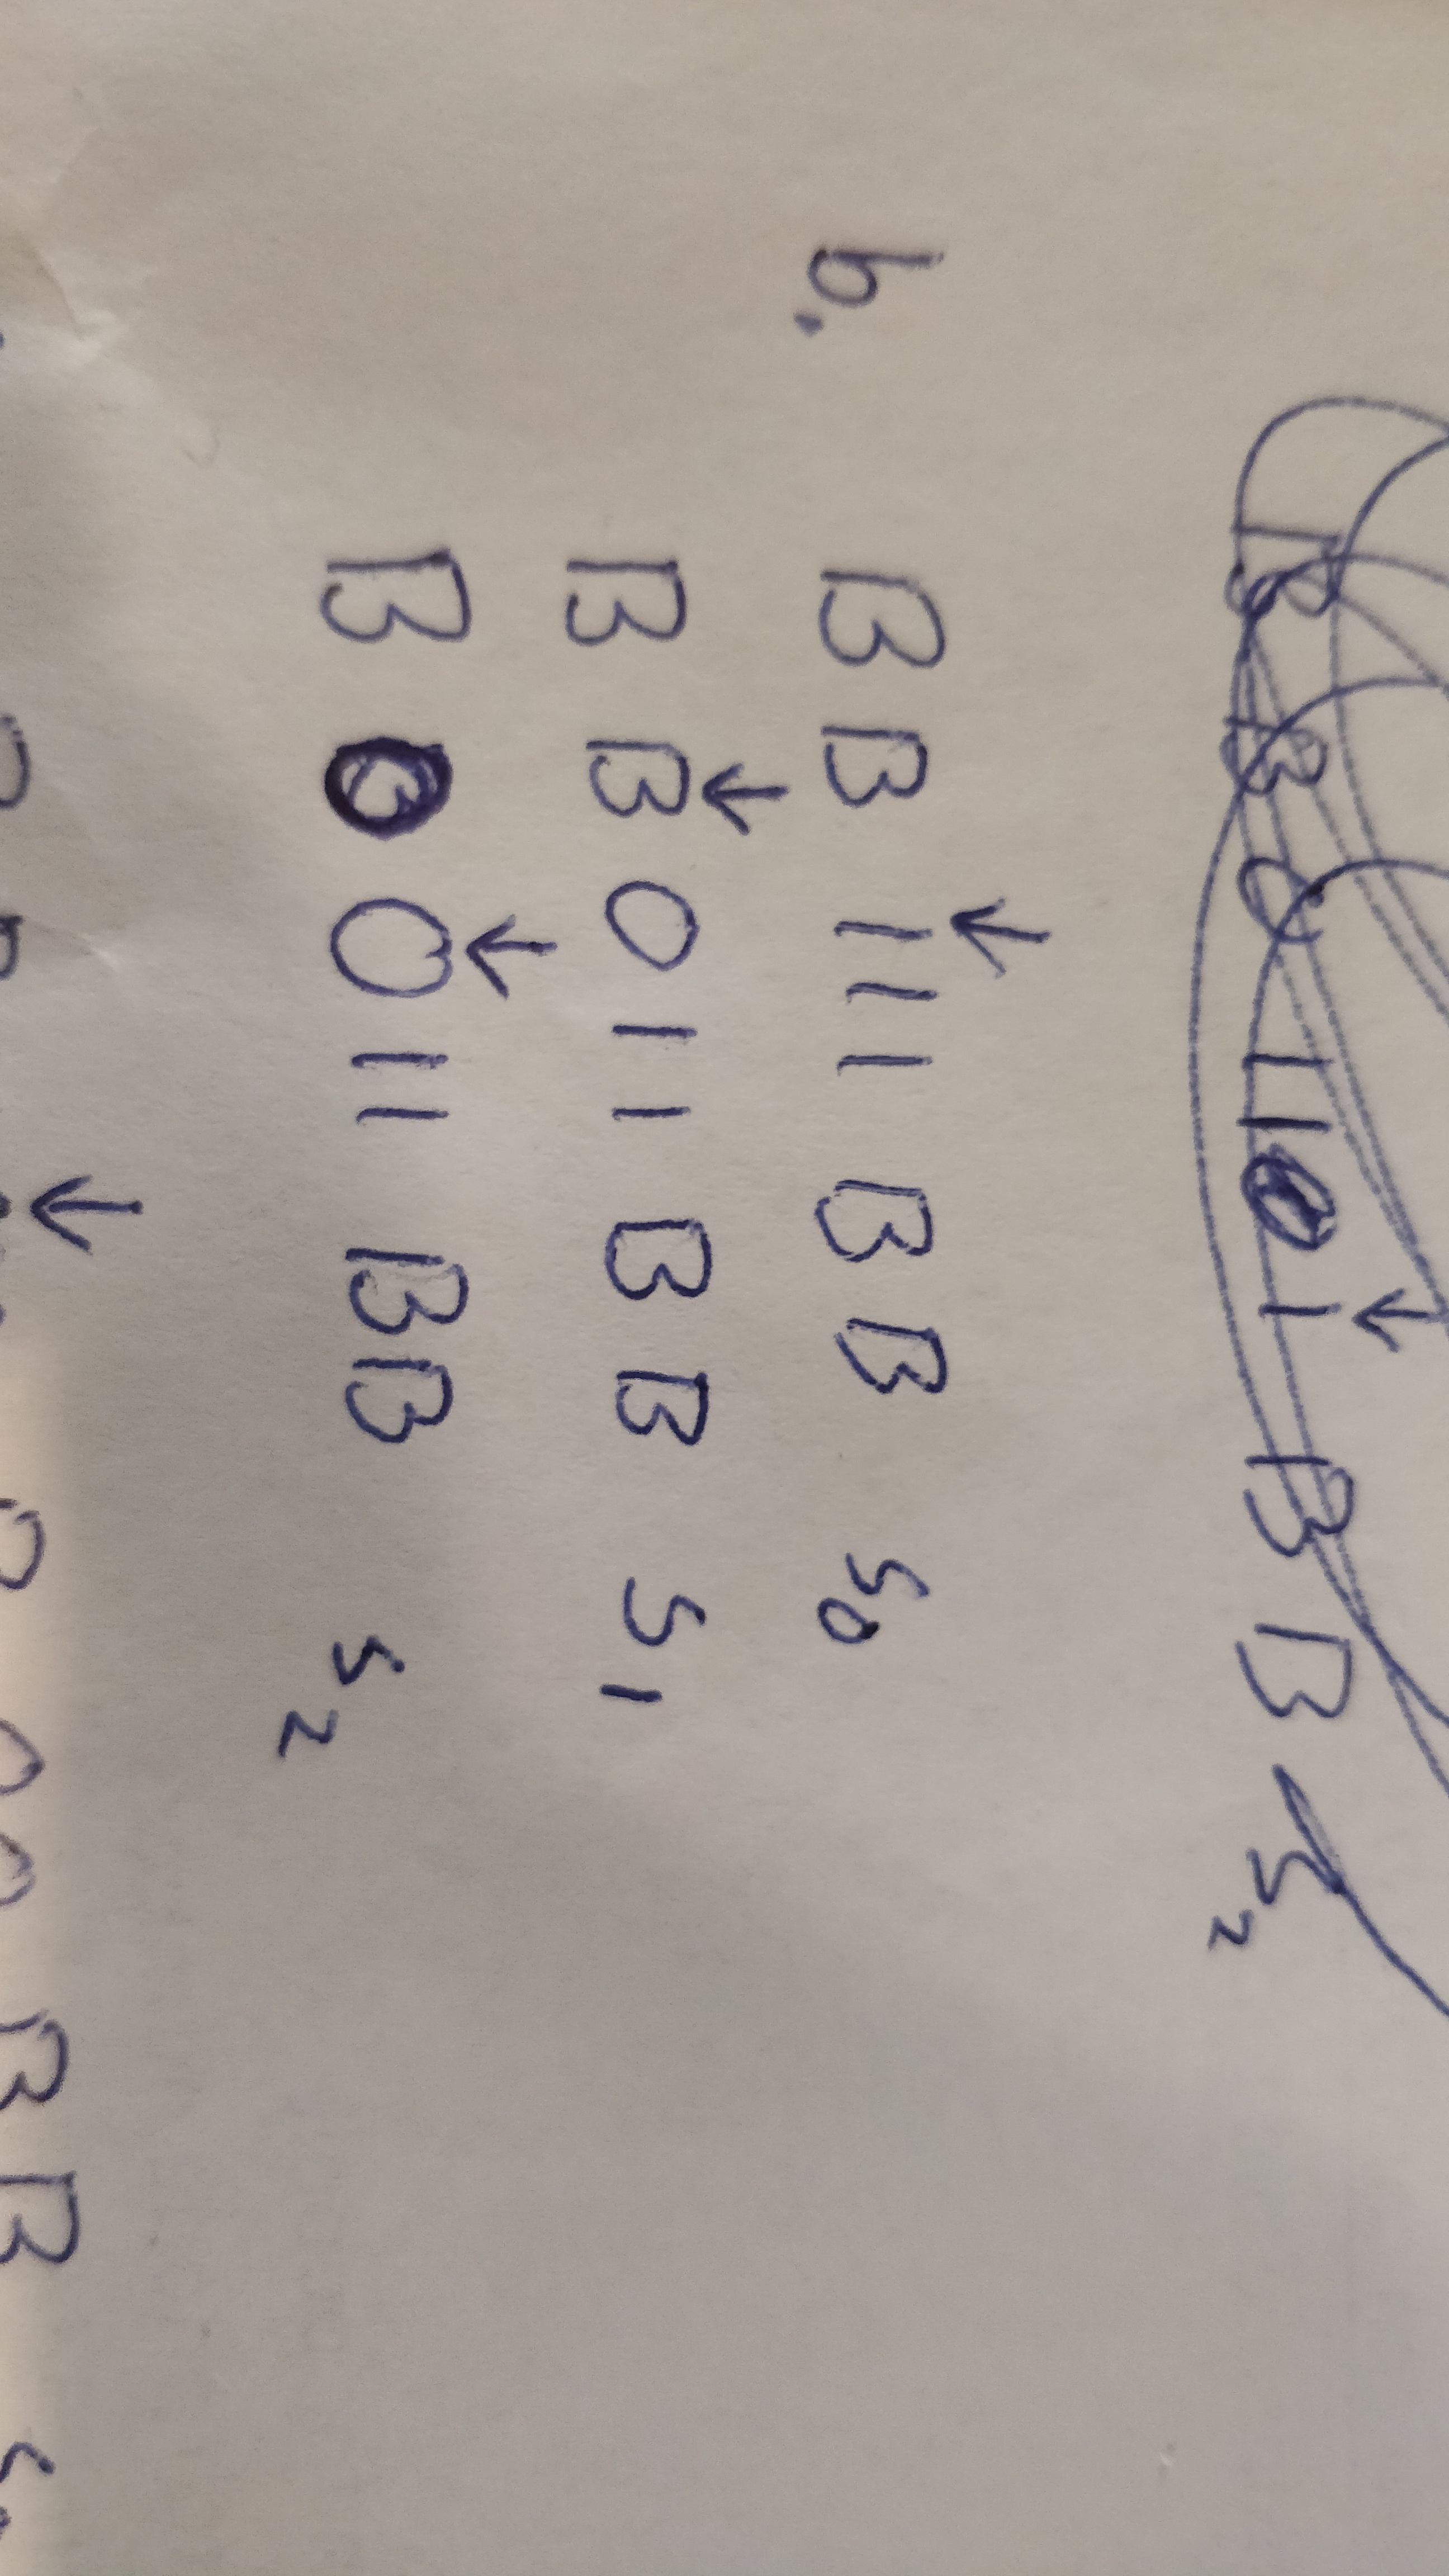 B B 0 1 1 0 1 B B S2
↓
b. B B 1 1 1 B B S0
↓
B B 0 1 1 B B S1
↓
B 0 0 1 1 B B S2
↓